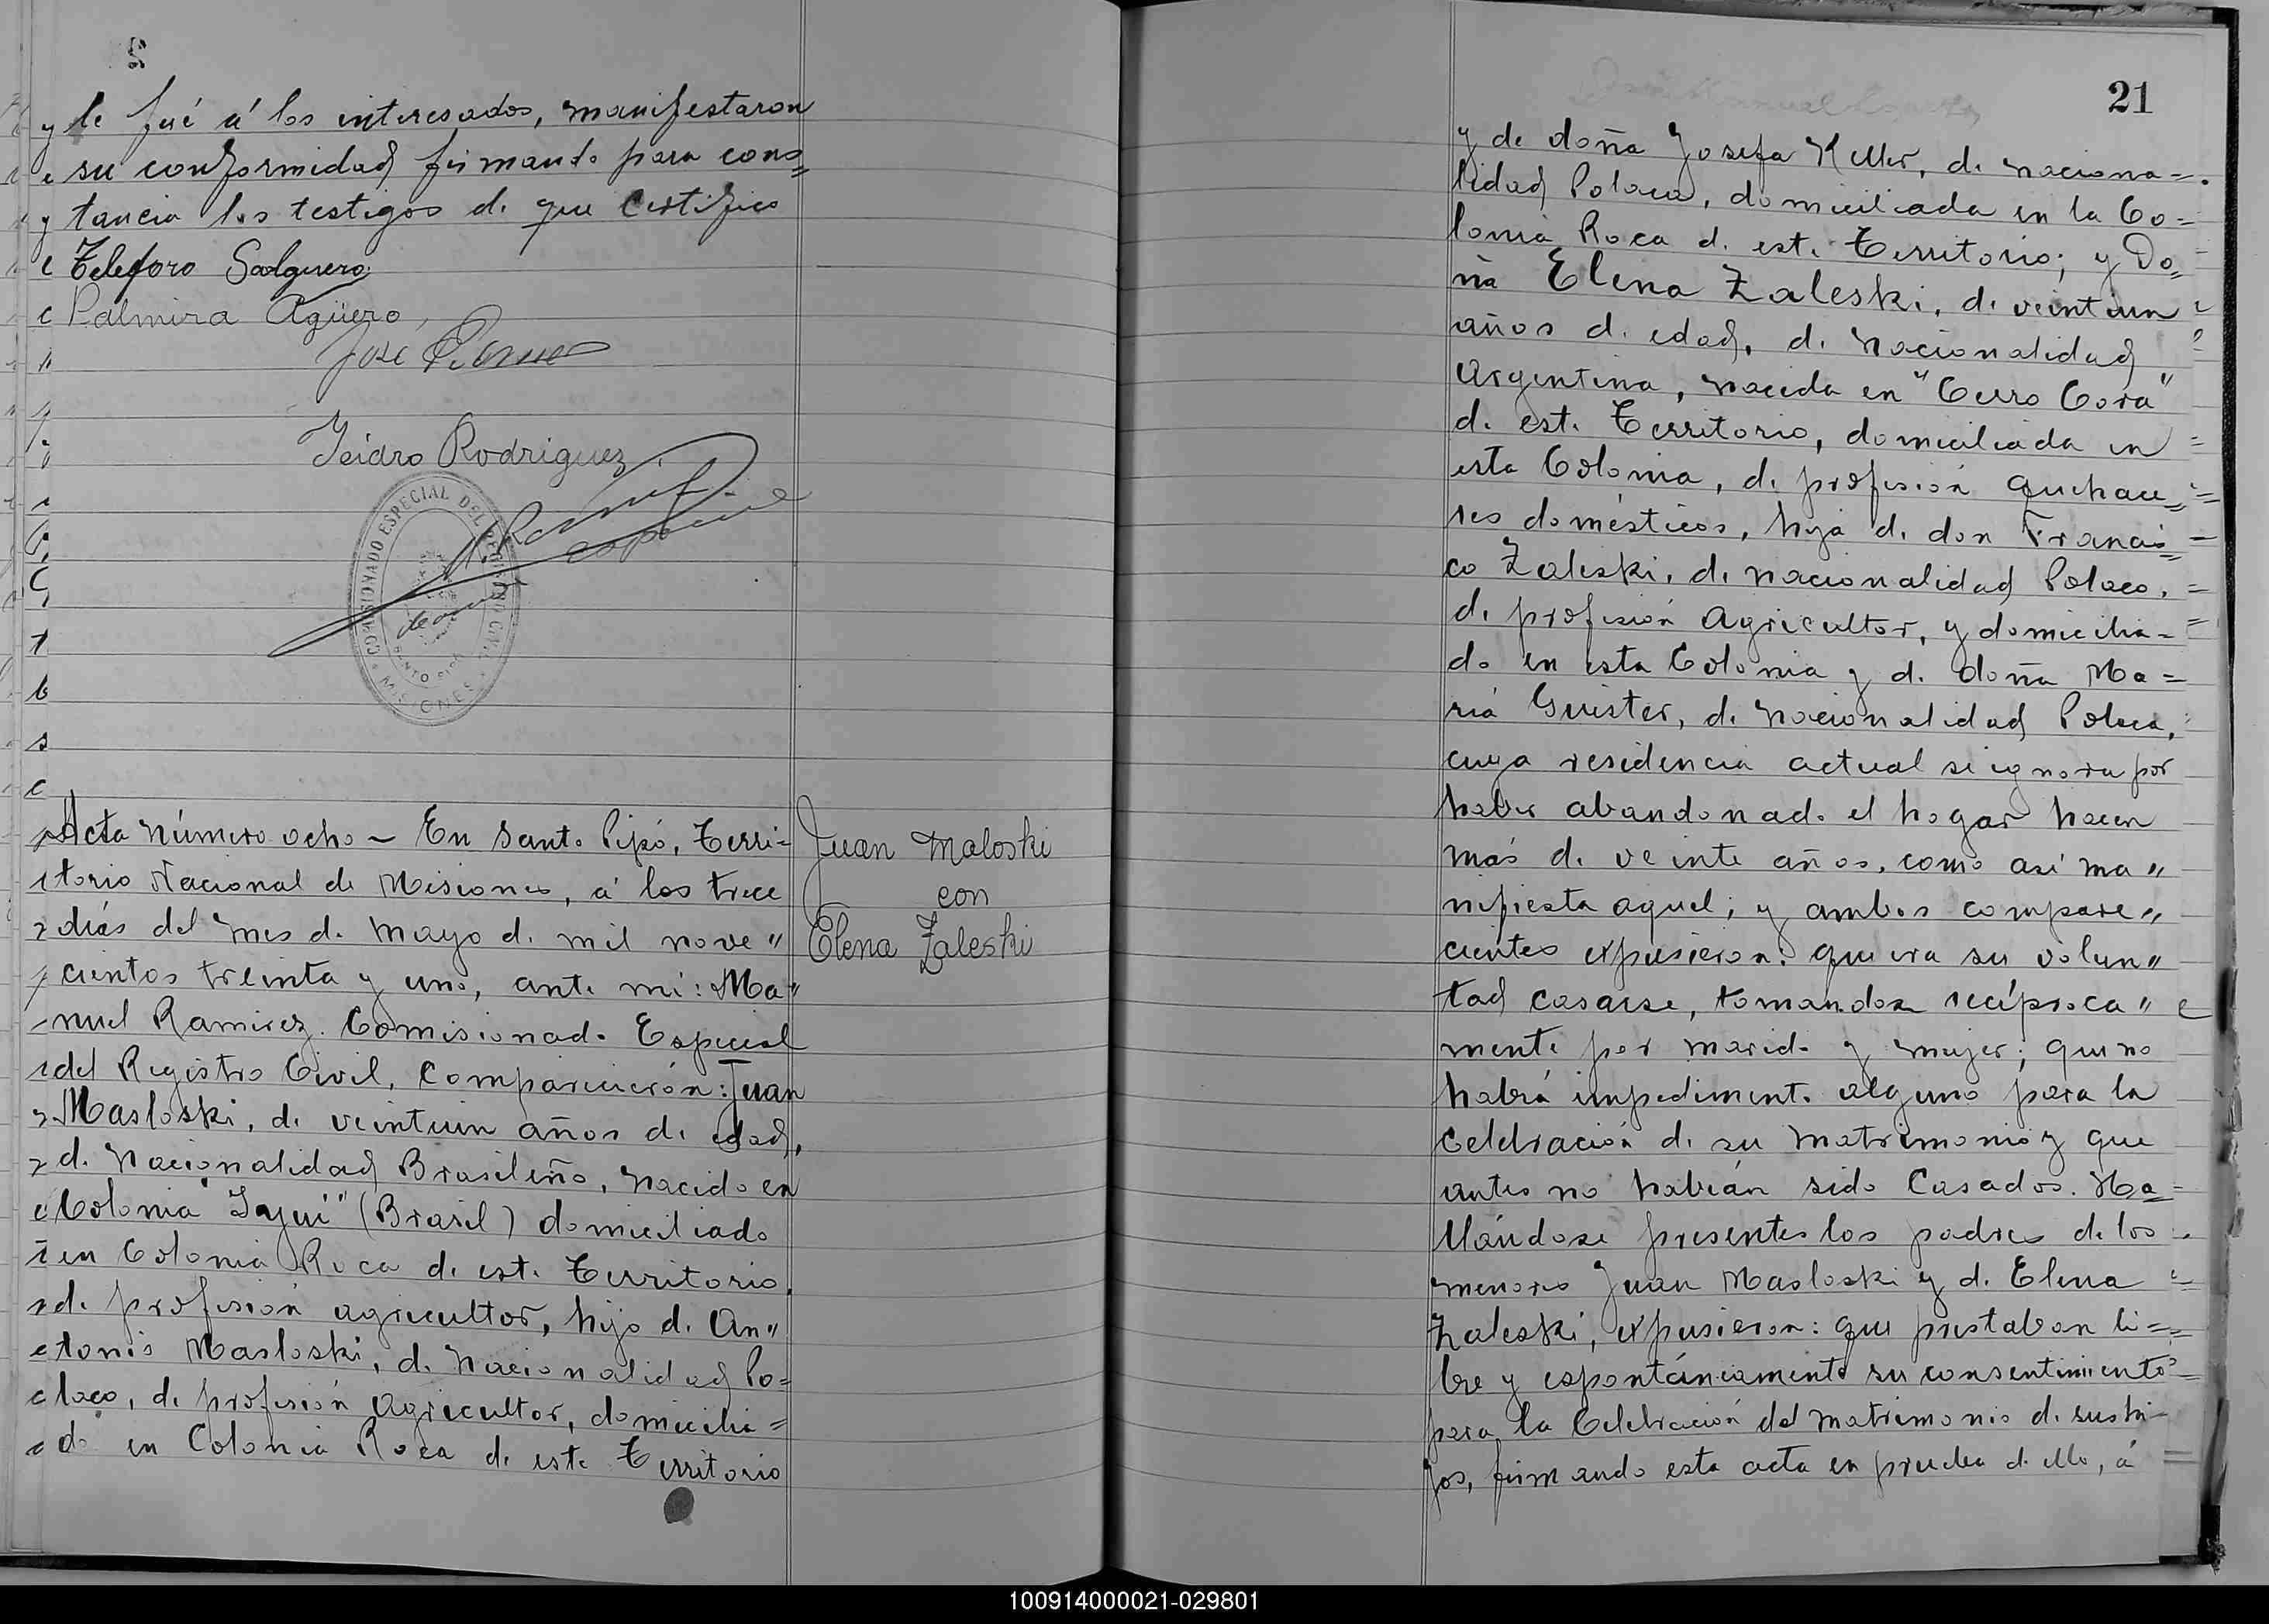 le fué á los interesados, manifestaron
su conformidad firmando para cons=
tancia los testigos de que certifico
Telesforo Salguero
Palmira Agüero
José
Isidro Rodriguez
COMISIONADO ESPECIAL DEL REGISTRO CIVIL
SANTO PIPÓ
MISIONES
Acta número ocho — En Santo Pipó, Terri=
torio Nacional de Misiones, á los trece
días del mes de Mayo de mil nove"
cientos treinta y uno, ante mi: Ma"
nuel Ramirez. Comisionado Especial
del Registro Civil, Comparecieron: Juan
Masloski, de veintiun años de edad,
de Nacionalidad Brasileño, nacido en
Colonia (Brasil) domiciliado
en Colonia Roca de este Territorio,
de profesión agricultor, hijo de An"
tonio Masloski, de Nacionalidad Po=
laco, de profesión Agricultor, domicilia=
do en Colonia Roca de este Territorio
Juan Maloski
con
Elena Zaleski
21
y de doña Josefa Keller, de naciona=
lidad Polaca, domiciliada en la Co=
lonia Roca de este Territorio; y Do=
ña Elena Zaleski, de veintiun
años de edad, de Nacionalidad
Argentina, nacida en "Cerro Corá"
de este Territorio, domiciliada en
esta Colonia, de profesión quehace=
res domésticos, hija de don Francis=
co Zaleski, de nacionalidad Polaco,
de profesión Agricultor, y domicilia=
do en esta Colonia y de doña Ma=
ria Guister, de Nacionalidad Polaca,
cuya residencia actual se ignora por
haber abandonado el hogar hacen
más de veinte años, como así ma"
nifiesta aquel; y ambos compare"
cientes expusieron: que era su volun"
tad casarse, tomandose recíproca"
mente por marido y mujer; que no
habrá impedimento alguno para la
Celebración de su matrimonio y que
antes no habían sido Casados. Ha=
llándose presentes los padres de los
menores Juan Masloski y de Elena
Zaleski, expusieron: que prestaban li=
bre y espontáneamente su consentimiento
para la Celebración del matrimonio de sus hi=
jos, firmando esta acta en prueba de ello, á
100914000021-029801